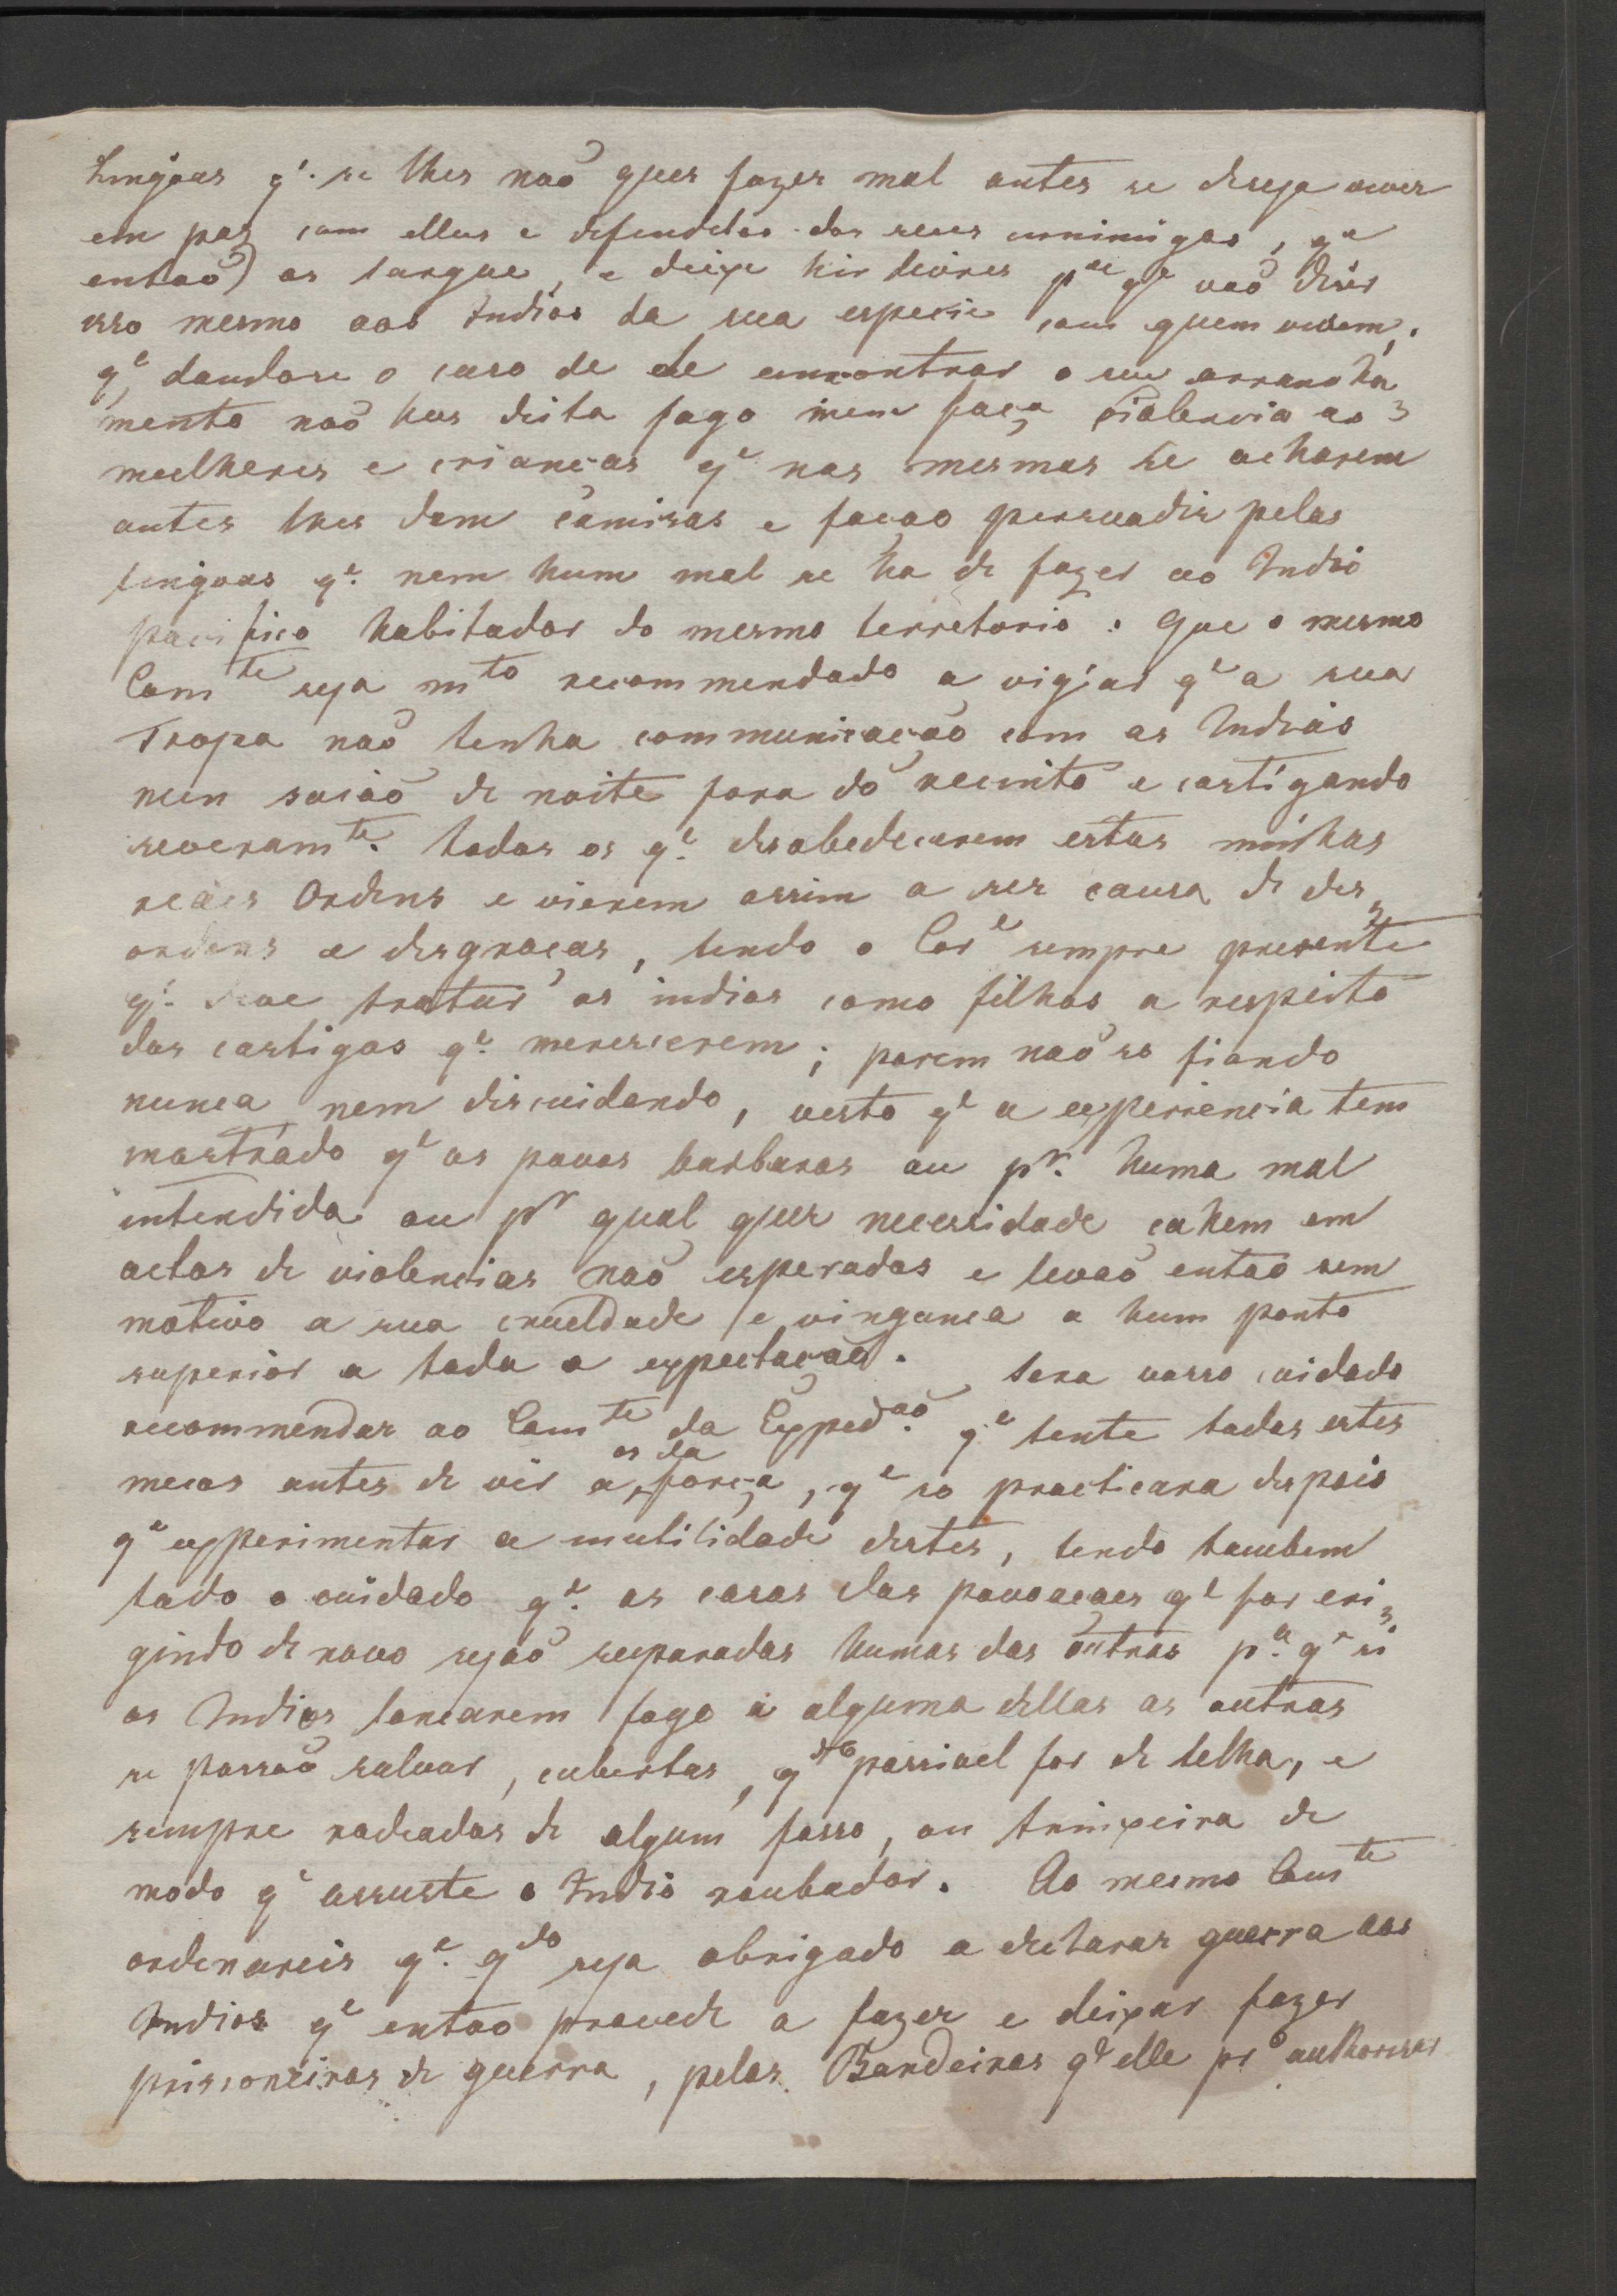 Lingoas q.e se lhes naõ quer fazer mal antes se deseja viver
em paz com elles e defendelos dos seus inimigos, q.e
entaõ) os largue, e deixe hir livres p.a q.e vaõ dizer
isso mesmo aos Indios da sua especie com quem vivem,
q.e dandose o caso de de encontrar o seu arrancha
mento naõ lhes deita fogo nem faça violencia as
mulheres e crianças q.e nas mesmas se acharem
antes lhes dem camisas e façaõ persuadir pelas
lingoas q.e nem hum mal se ha de fazer ao Indio
pacifico habitador do mesmo terretorio: Que o mesmo
Com.te seja m.to recommendado a vigiar q.e a sua
Tropa naõ tenha communicaçaõ com as Indias
nem saiaõ de noite fora do recinto e castigando
severam.te todos os q.e desobedecerem estas minhas
reaes Ordens e vierem assim a ser causa de des
ordens e desgraças, tendo o Cor.e sempre presente
q.e deve tratar os indios como filhos a respeito
dos castigos q.e merescerem; porem naõ se fiando
nunca nem discuidando, visto q.e a experiencia tem
mostrado q.e os povos barbaros ou p.r huma mal
intendida ou p.r qual quer necessidade cahem em
actos de violencias naõ esperadas e levaõ entaõ sem
motivo a sua crueldade e vingança a hum ponto
superior a toda a expectaçaõ. Sera vosso cuidado
recommendar ao Com.te da Exped.aõ q.e tente todos estes
meios antes de vir a os da força, q.e só practicara depois
q.e experimentar a inutilidade destes, tendo tambem
todo o cuidado q.e as casas das povoaçaes q.e for eri
gindo de novo sejaõ separadas humas das outras p.a q.e si
os Indios lancarem fogo á alguma dellas as outras
se possaõ salvar, cubertas, q.do possivel for de telha, e
sempre rodeadas de algum fosso, ou trinxeira de
modo q.e assuste o Indio roubador. Ao mesmo Com.te
ordenareis q.e q.do seja obrigado a declarar guerra aos
Indios q.e entaõ procede a fazer e deixar fazer
prisioneiros de guerra, pelas Bandeiras q.e elle p.o authorisar